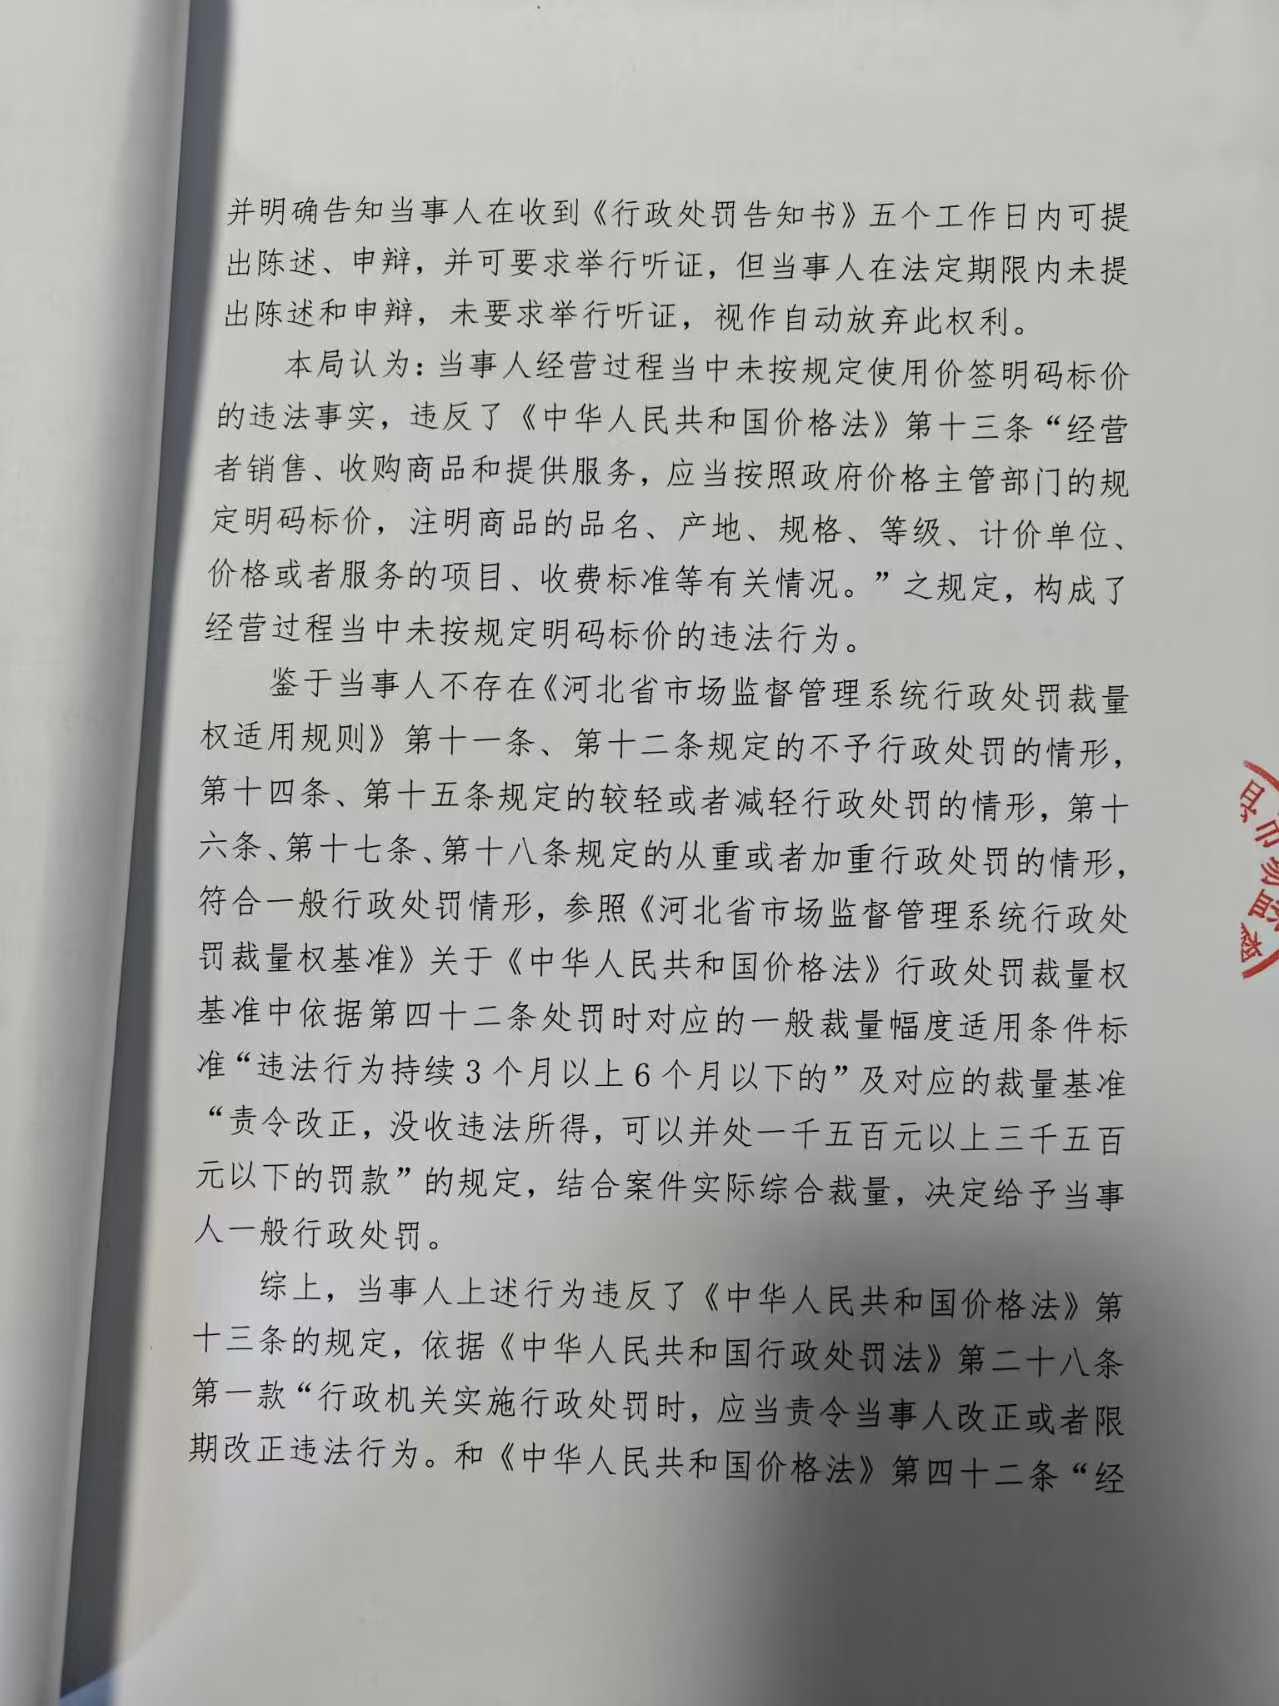 并明确告知当事人在收到《行政处罚告知书》五个工作日内可提
出陈述、申辩，并可要求举行听证，但当事人在法定期限内未提
出陈述和申辩，未要求举行听证，视作自动放弃此权利。
本局认为：当事人经营过程当中未按规定使用价签明码标价
的违法事实，违反了《中华人民共和国价格法》第十三条“经营
者销售、收购商品和提供服务，应当按照政府价格主管部门的规
定明码标价，注明商品的品名、产地、规格、等级、计价单位、
价格或者服务的项目、收费标准等有关情况。”之规定，构成了
经营过程当中未按规定明码标价的违法行为。
鉴于当事人不存在《河北省市场监督管理系统行政处罚裁量
权适用规则》第十一条、第十二条规定的不予行政处罚的情形，
第十四条、第十五条规定的较轻或者减轻行政处罚的情形，第十
六条、第十七条、第十八条规定的从重或者加重行政处罚的情形，
符合一般行政处罚情形，参照《河北省市场监督管理系统行政处
罚裁量权基准》关于《中华人民共和国价格法》行政处罚裁量权
基准中依据第四十二条处罚时对应的一般裁量幅度适用条件标
准“违法行为持续3个月以上6个月以下的”及对应的裁量基准
“责令改正，没收违法所得，可以并处一千五百元以上三千五百
元以下的罚款”的规定，结合案件实际综合裁量，决定给予当事
人一般行政处罚。
综上，当事人上述行为违反了《中华人民共和国价格法》第
十三条的规定，依据《中华人民共和国行政处罚法》第二十八条
第一款“行政机关实施行政处罚时，应当责令当事人改正或者限
期改正违法行为。和《中华人民共和国价格法》第四十二条“经